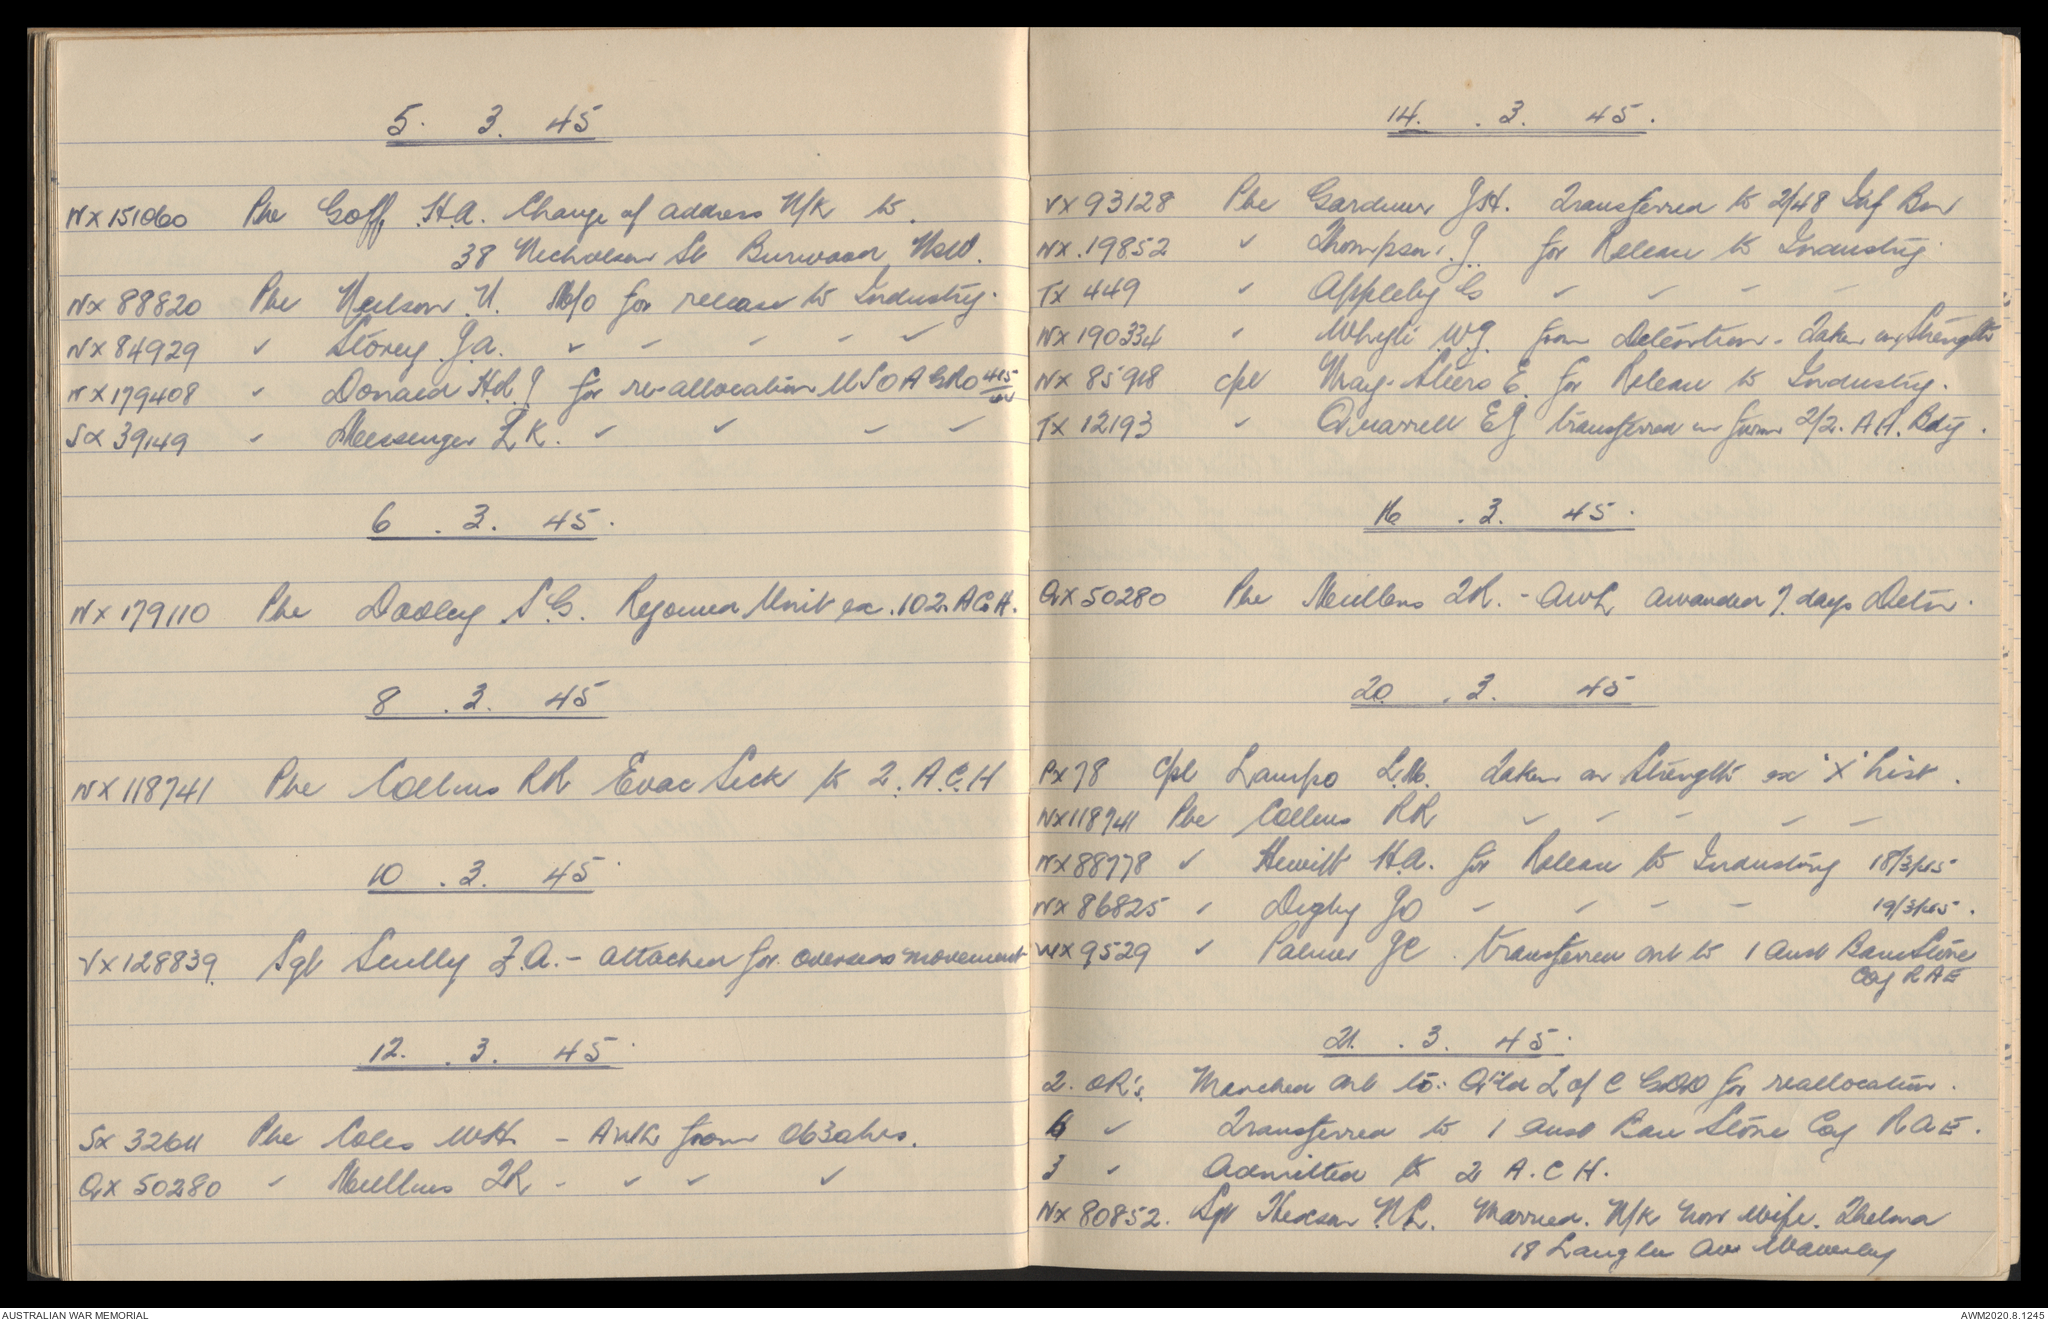 5. 3. 45
NX151060 Pte Goff H.A. Change of address N/K to.
38 Nicholson St Burwood NSW.
NX 88820 Pte Neilson N. M/O for release to Industry.
NX 84929 " Storey J.A. " " " " "
NX179408 " Donald H.R.J for re-allocation MSOAGRO 415/
SX 39149 " Messenger L K. " " " "
6 . 3. 45.
NX 179110 Pte Dooley S.G. Rejoined Unit ex. 102. AGH.
8 . 3. 45
NX 118741 Pte Collins RR Evac Sick to 2. A.G.H
10 . 3. 45
VX128839. Sgt Scully F.A. - attached for overseas movement
12. . 3. 45
SX 32611 Pte Coles WH - AWL from 0630hrs.
QX 50280 " Mullins LR - " " "
14. . 3. 45.
VX 93128 Pte Gardiner JH. Transferred to 2/48 Inf Bn
NX. 19852 " Thompson. J. for Release to Industry.
TX 449 " Appleby G " " " "
NX 190334 " Whyte W.J. from Detention - Taken on Strength
NX 85918 cpl May-Steers E. for Release to Industry.
TX 12193 " Quarrell EJ transferred in from 2/2. A A. Bty.
16 . 3. 45.
QX 50280 Pte Mullens LR. - AWL awarded 7. days Detn.
20. . 3. 45
PX78 Cpl Lampo L.M. taken on Strength ex 'X' List.
NX118741 Pte Collins RR " " " " "
NX88778 " Hewitt H.A. for Release to Industry 18/3/45
NX 86825 " Digby JO " " " " 19/3/45.
WX 9529 " Palmer JC. transferred out to 1 Aust Bau Store
Coy RAE
21. . 3. 45.
2. OR's. Marched out to: Q'ld L of C GDD for reallocation.
6 " Transferred to 1 Aust Bau Store Coy RAE.
3 " Admitted to 2 A.G.H.
NX 80852. Sgt Hexson N.L. Married. N/K now Wife. Thelma
18 Langlee Ave Waverley
AUSTRALIAN WAR MEMORIAL
AWM2020.8.1245